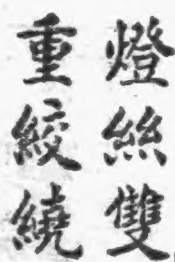 燈絲雙
重絞繞